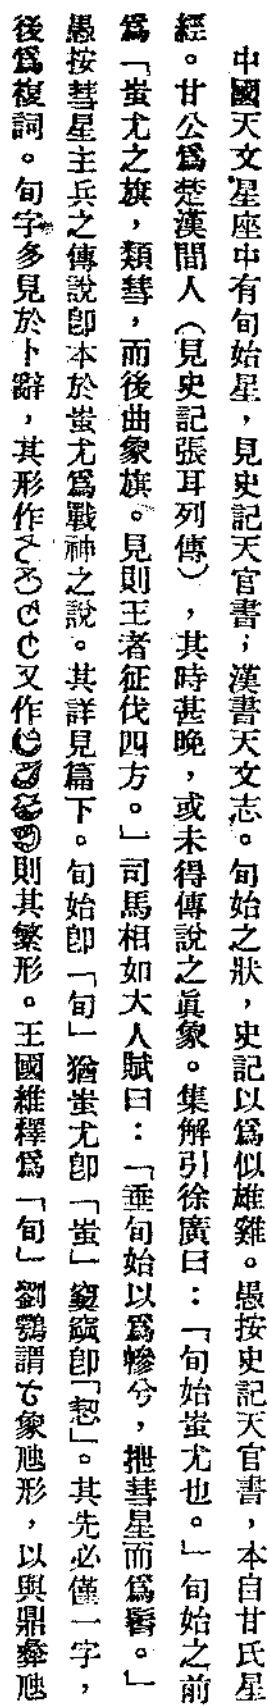 中國天文星座中有旬始星，見史記天官書；漢書天文志。旬始之狀，史記以爲似雄雞。愚按史記天官書，本自甘氏星
經。甘公爲楚漢間人（見史記張耳列傳），其時甚晚，或未得傳說之眞象。集解引徐廣曰：「旬始蚩尤也。」旬始之前
爲「蚩尤之旗，類彗，而後曲象旗。見則王者征伐四方。」司馬相如大人賦曰：「垂旬始以爲幓兮，抴彗星而爲髾。」
愚按彗星主兵之傳說卽本於蚩尤爲戰神之說。其詳見篇下。旬始卽「旬」猶蚩尤卽「蚩」窫窳卽「㓞」。其先必僅一字，
後爲複詞。旬字多見於卜辭，其形作又作則其繁形。王國維釋爲「旬」劉鶚謂象虺形，以與鼎彝虺